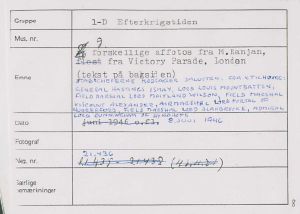 Gruppe 1-D Efterkrigstiden
Mus. nr.
9.
forskellige affotos fra M.Kanjan,
fra Victory Parade, London
(tekst på bagsiden)
Emne STABSCHEFERNE MODTAGER SALUTEN. FOR ETC. HØJRE:
GENERAL HASTINGS ISMAY, LORD LOUIS MOUNTBATTEN,
FIELD MARSHAL LORD MAITLAND WILSON, FIELD MARSHAL
VISCOUNT ALEXANDER, AIRMARSHAL LORD PORTAL OF
HUNGERFORD, FIELD MARSHAL LORD ALANBROOKE, ADMIRAL
LORD CUNNINGHAM OF HYNDHOPE
Dato juni 1946 o.fl. 8 JUNI 1946
Fotograf
21.436
Neg. nr. 21.437 - 21.438
Særlige
bemærkninger
8